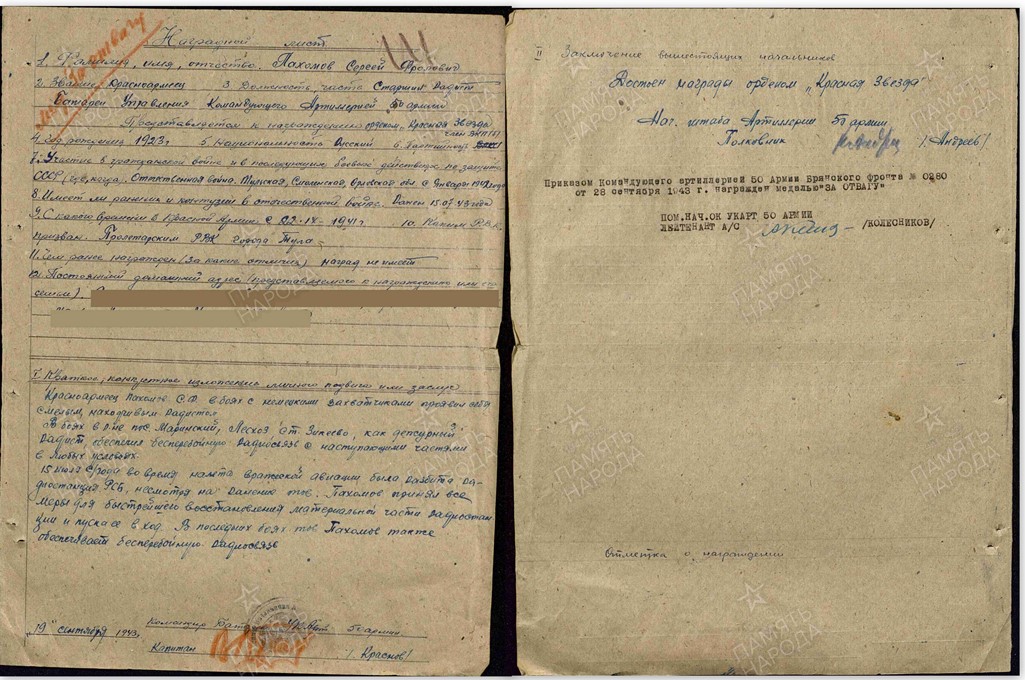 Наградной лист
1. Фамилия, имя, отчество. Пахомов Сергей Фролович
2. Звание Красноармеец 3 Должность, часть Старший Радист
Батареи Управления Командующего Артиллерией 50 армии
Представляется к награждению орденом „Красная Звезда"
4. Год рождения 1923 г. 5 Национальность Русский 6 Партийность
7. Участие в гражданской войне и в последующих боевых действиях по защите
СССР (где, когда. Отечественная война. Тульская, Смоленская, Орловская обл. с Января 1942 года
8. Имеет ли ранения и контузии в отечественной войне. Ранен 15.07.43 года
9. С какого времени в Красной Армии с 1941 г. 10. Каким РВК
призван. Пролетарским РВК города Тула
11. Чем ранее награжден (за какие отличия) наград не имеет
12. Постоянный домашний адрес (представляемого к награждению или его
семьи).
I. Краткое, конкретное изложение личного подвига или заслуг
Красноармеец Пахомов С.Ф. в боях с немецкими захватчиками проявил себя
смелым, находчивым радистом
В боях в р-не пос. Маринский, Лесхоз ст. Зикеево, как дежурный
радист, обеспечил бесперебойную радиосвязь с наступающими частями
в любых условиях.
15 июля с/года во время налета вражеской авиации была разбита ра-
диостанция РСБ, несмотря на ранение тов. Пахомов принял все
меры для быстрейшего восстановления материальной части радиостан
ции и пуска ее в ход. В последних боях тов Пахомов также
обеспечивает бесперебойную радиосвязь
„19" сентября 1943г
Командир Бат. 50 армии
Капитан /Краснов/
II Заключение вышестоящих начальников
Достоен награды орденом „Красная Звезда"
Нач. штаба Артиллерии 50 армии
Полковник /Андреев/
Приказом Командующего артиллерией 50 Армии Брянского фронта № 0280
от 28 сентября 1943 г. награжден медалью "ЗА ОТВАГУ"
ПОМ.НАЧ.ОК УКАРТ 50 АРМИИ
ЛЕЙТЕНАНТ А/С /КОЛЕСНИКОВ/
Отметка о награждении
ПАМЯТЬ
НАРОДА